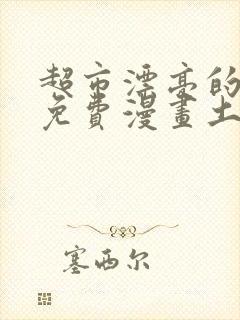 超市漂亮的
免費漫畫土
塞西尔